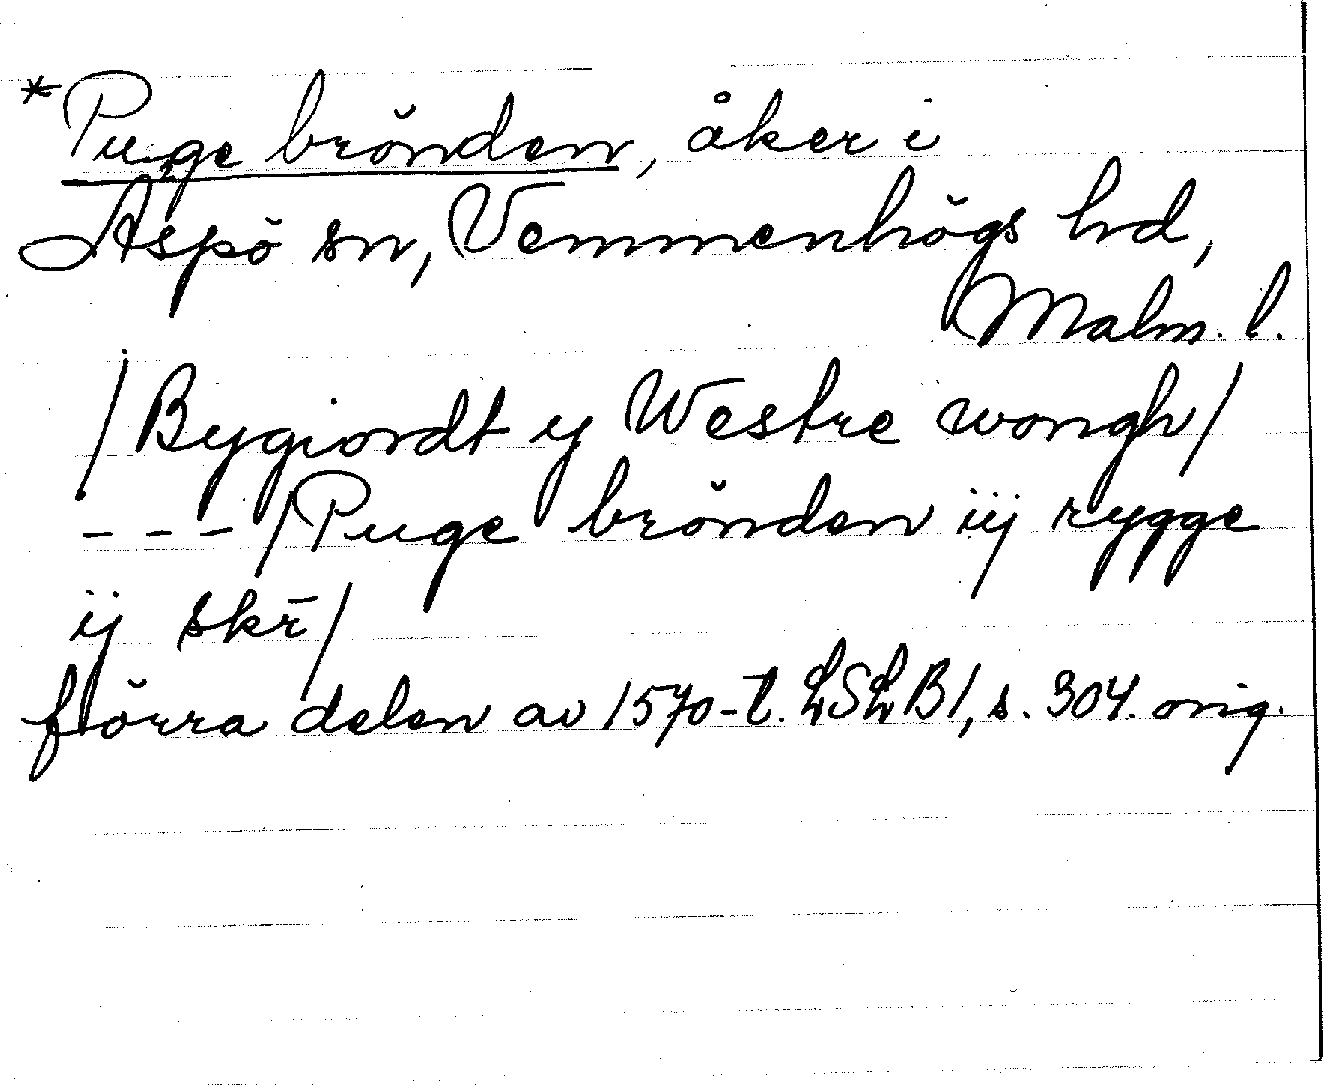 *Puge brönden, åker i
Aspö sn, Vemmenhögs hd,
Malm. l.
/Bygiordt y Westre wongh/
--- /Puge brönden iij rygge
ij skr̄/
förra delen av 1570-t. LSLB1, s. 304. orig.